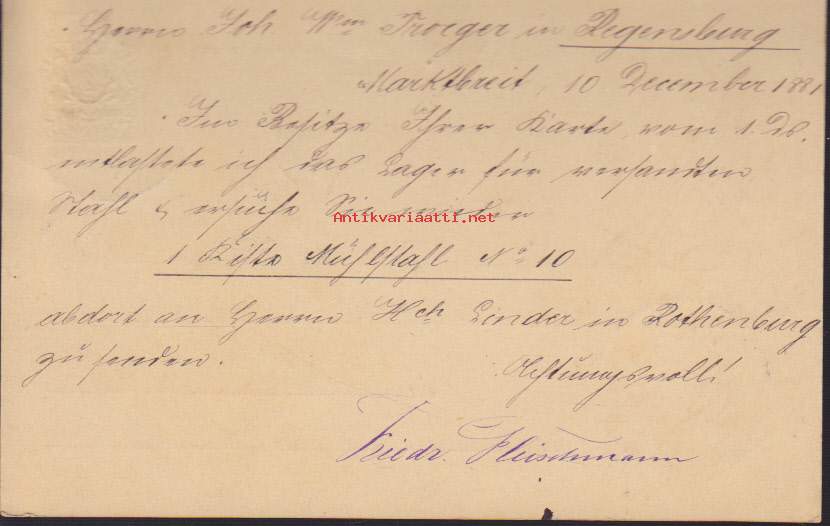 Herrn Joh Wm Troeger in Regensburg
Marktbreit, 10 December 1881
Im Besitze Ihrer Karte vom 1. Ds.
entlastete ich das Lager für versandten
Stahl & ersuche Sie wieder
Antikvariaatti.net
1 Kiste Mühlstahl No 10
abdort an Herrn Hch Linder in Rothenburg
zu senden.
Achtungsvoll!
Friedr. Fleischmann